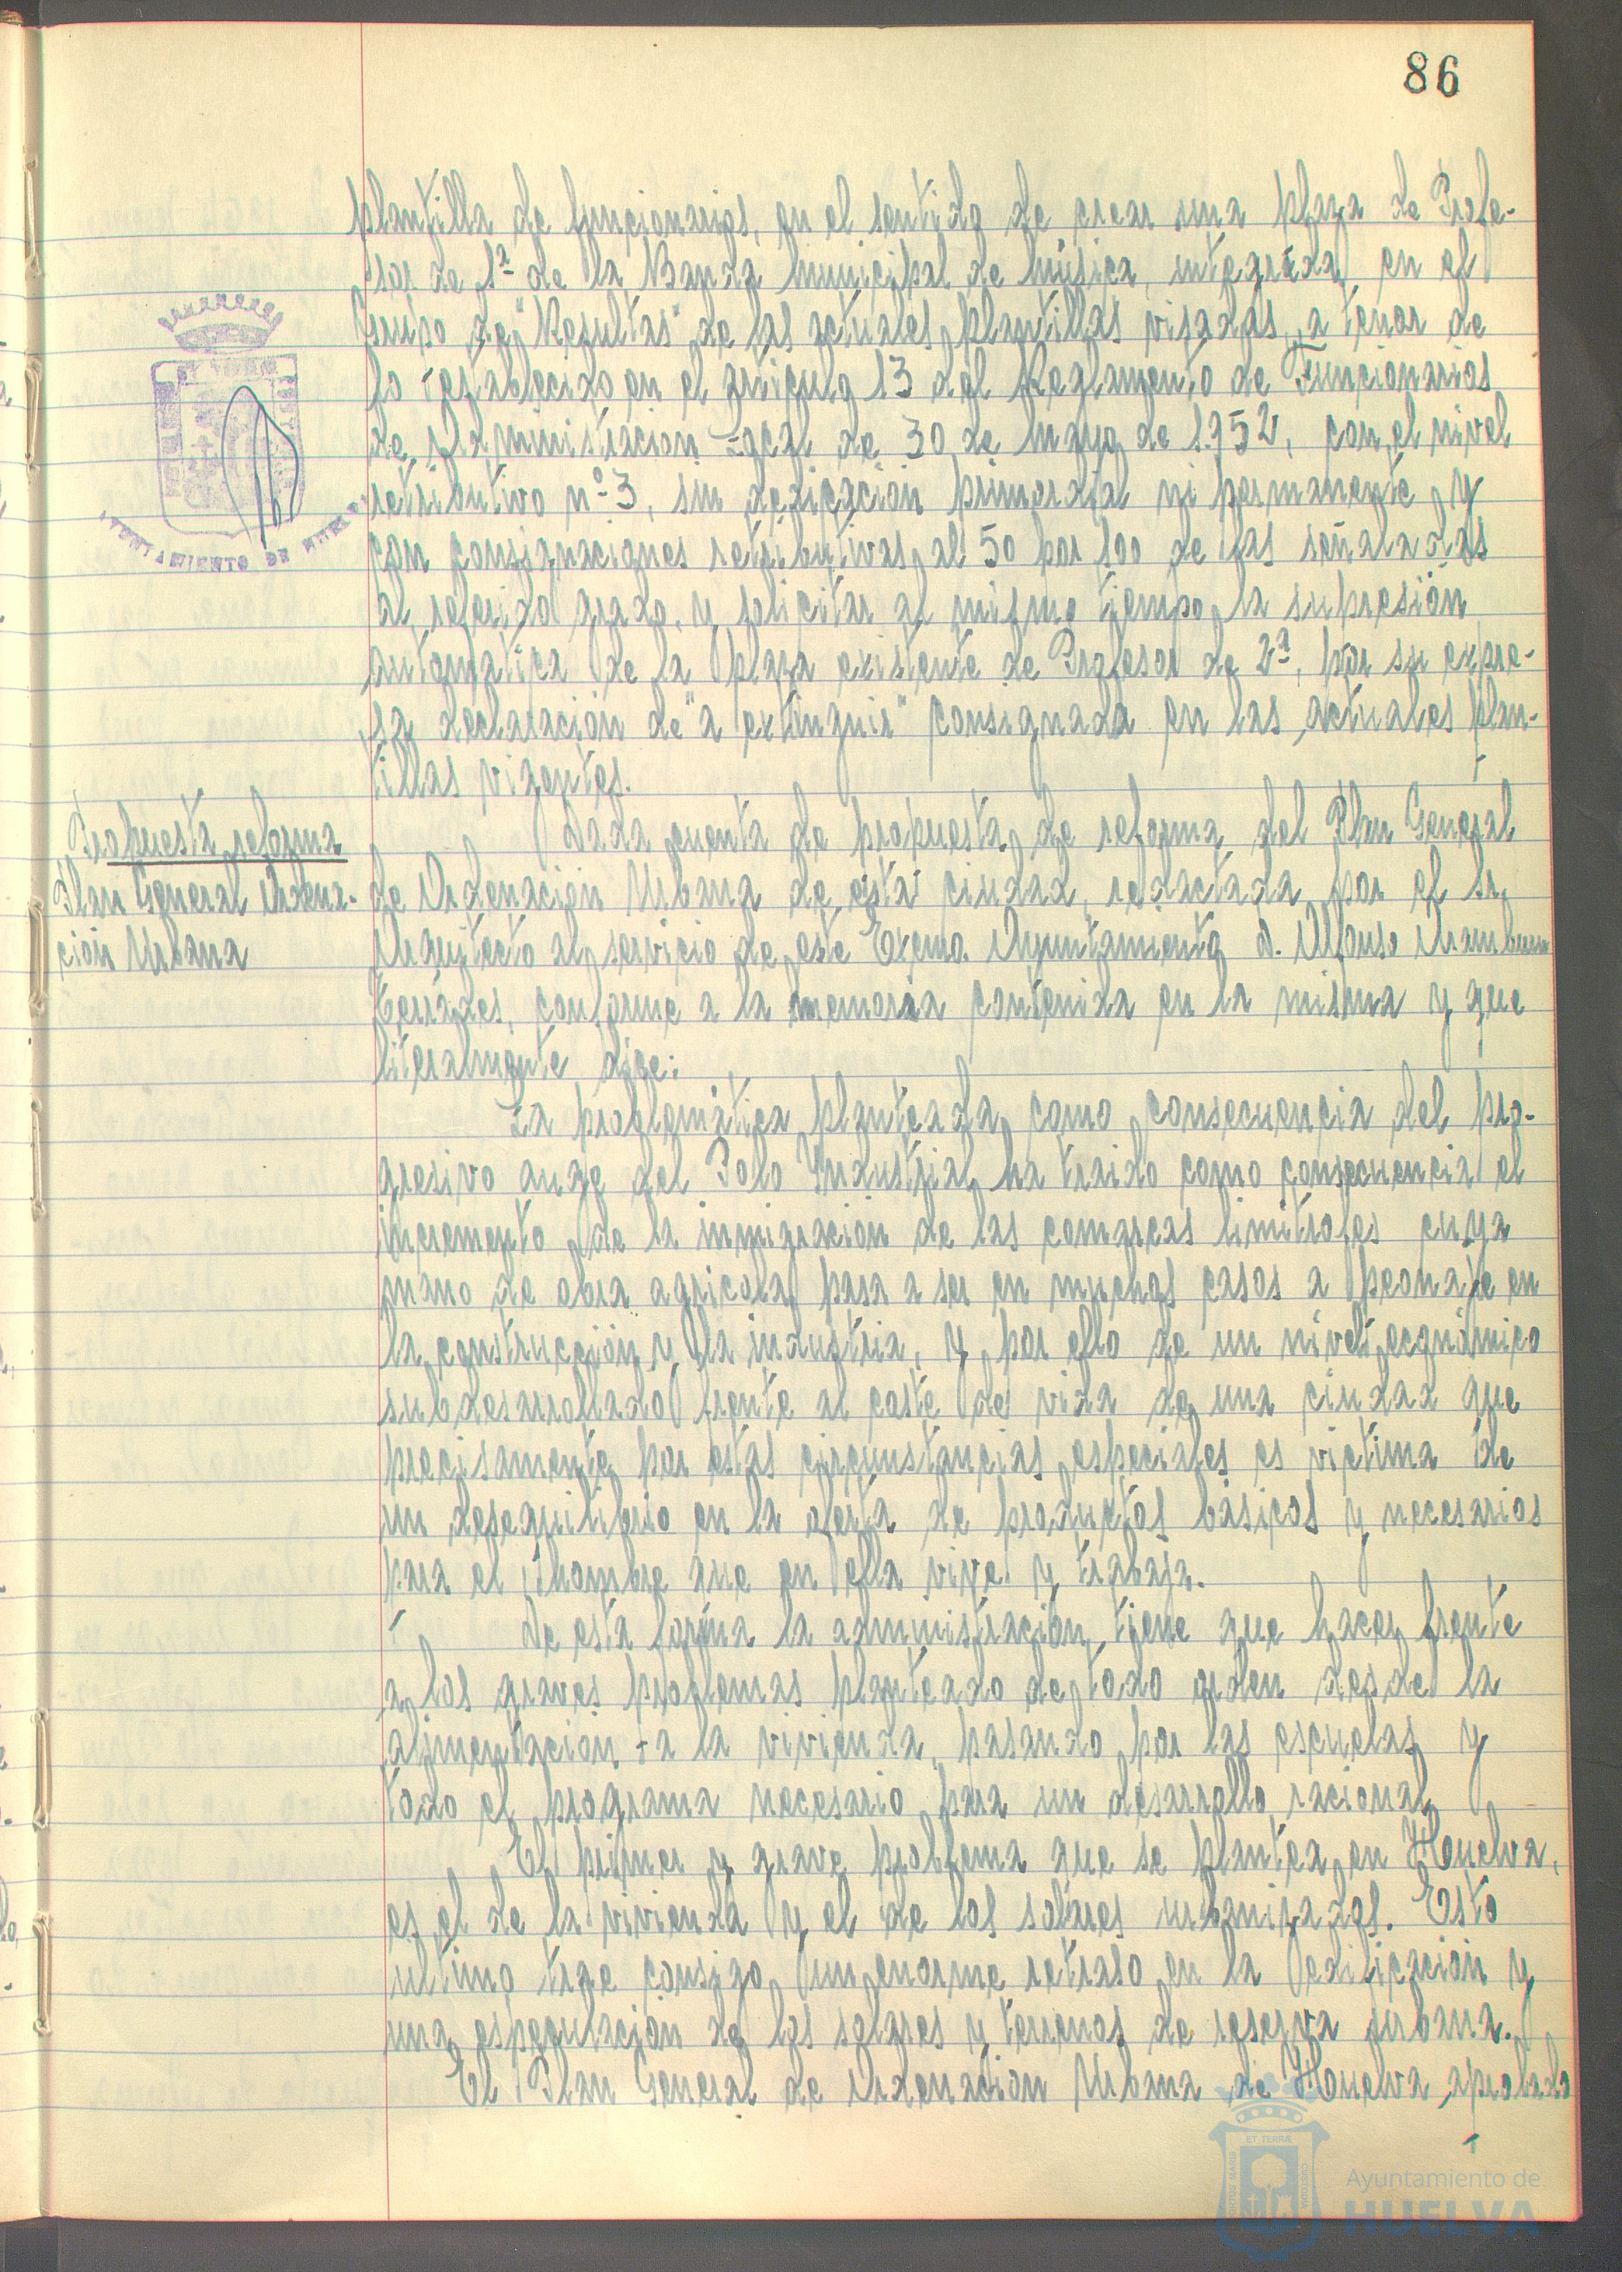 86
plantilla de funcionarios, en el sentido de crear una plaza de Profe-
sor de 1ª de la Banda municipal de música, integrada en el
Grupo de "Resultas" de las actuales plantillas visadas, a tenor de
lo establecido en el artículo 13 del Reglamento de Funcionarios
de Administración Local de 30 de mayo de 1.952, con el nivel
retributivo nº 3, sin dedicación primordial ni permanente y
con consignaciones retributivas al 50 por 100 de las señaladas
al referido grado, y solicitar al mismo tiempo la supresión
automática de la plaza existente de Profesor de 2ª, por su expre-
sa declaración de "a extinguir" consignada en las actuales plan-
tillas vigentes.
Propuesta reforma
Plan General Ordena-
ción Urbana
Dada cuenta de propuesta de reforma del Plan General
de Ordenación Urbana de esta ciudad, redactada por el Sr.
Arquitecto al servicio de este Excmo. Ayuntamiento D. Alfonso Aramburu
Terrades, conforme a la memoria contenida en la misma y que
literalmente dice:
La problemática planteada como consecuencia del pro-
gresivo auge del Polo Industrial ha traido como consecuencia el
incremento de la inmigracion de las comarcas limitrofes cuya
mano de obra agricola pasa a ser en muchos casos a peonaje en
la construcción y la industria, y por ello de un nivel económico
subdesarrollado frente al coste de vida de una ciudad que
precisamente por estas circunstancias especiales es victima de
un desequilibrio en la oferta de productos básicos y necesarios
para el hombre que en ella vive y trabaja.
De esta forma la administración tiene que hacer frente
a los graves problemas planteado de todo orden desde la
alimentación a la vivienda, pasando por las escuelas y
todo el programa necesario para un desarrollo racional
El primer y grave problema que se plantea en Huelva,
es el de la vivienda y el de los solares urbanizados. Esto
ultimo trae consigo un enorme retraso en la edificación y
una especulación de los solares y terrenos de reserva urbana.
El Plan General de Ordenación Urbana de Huelva aprobado
AYUNTAMIENTO DE HUELVA
Ayuntamiento de
HUELVA